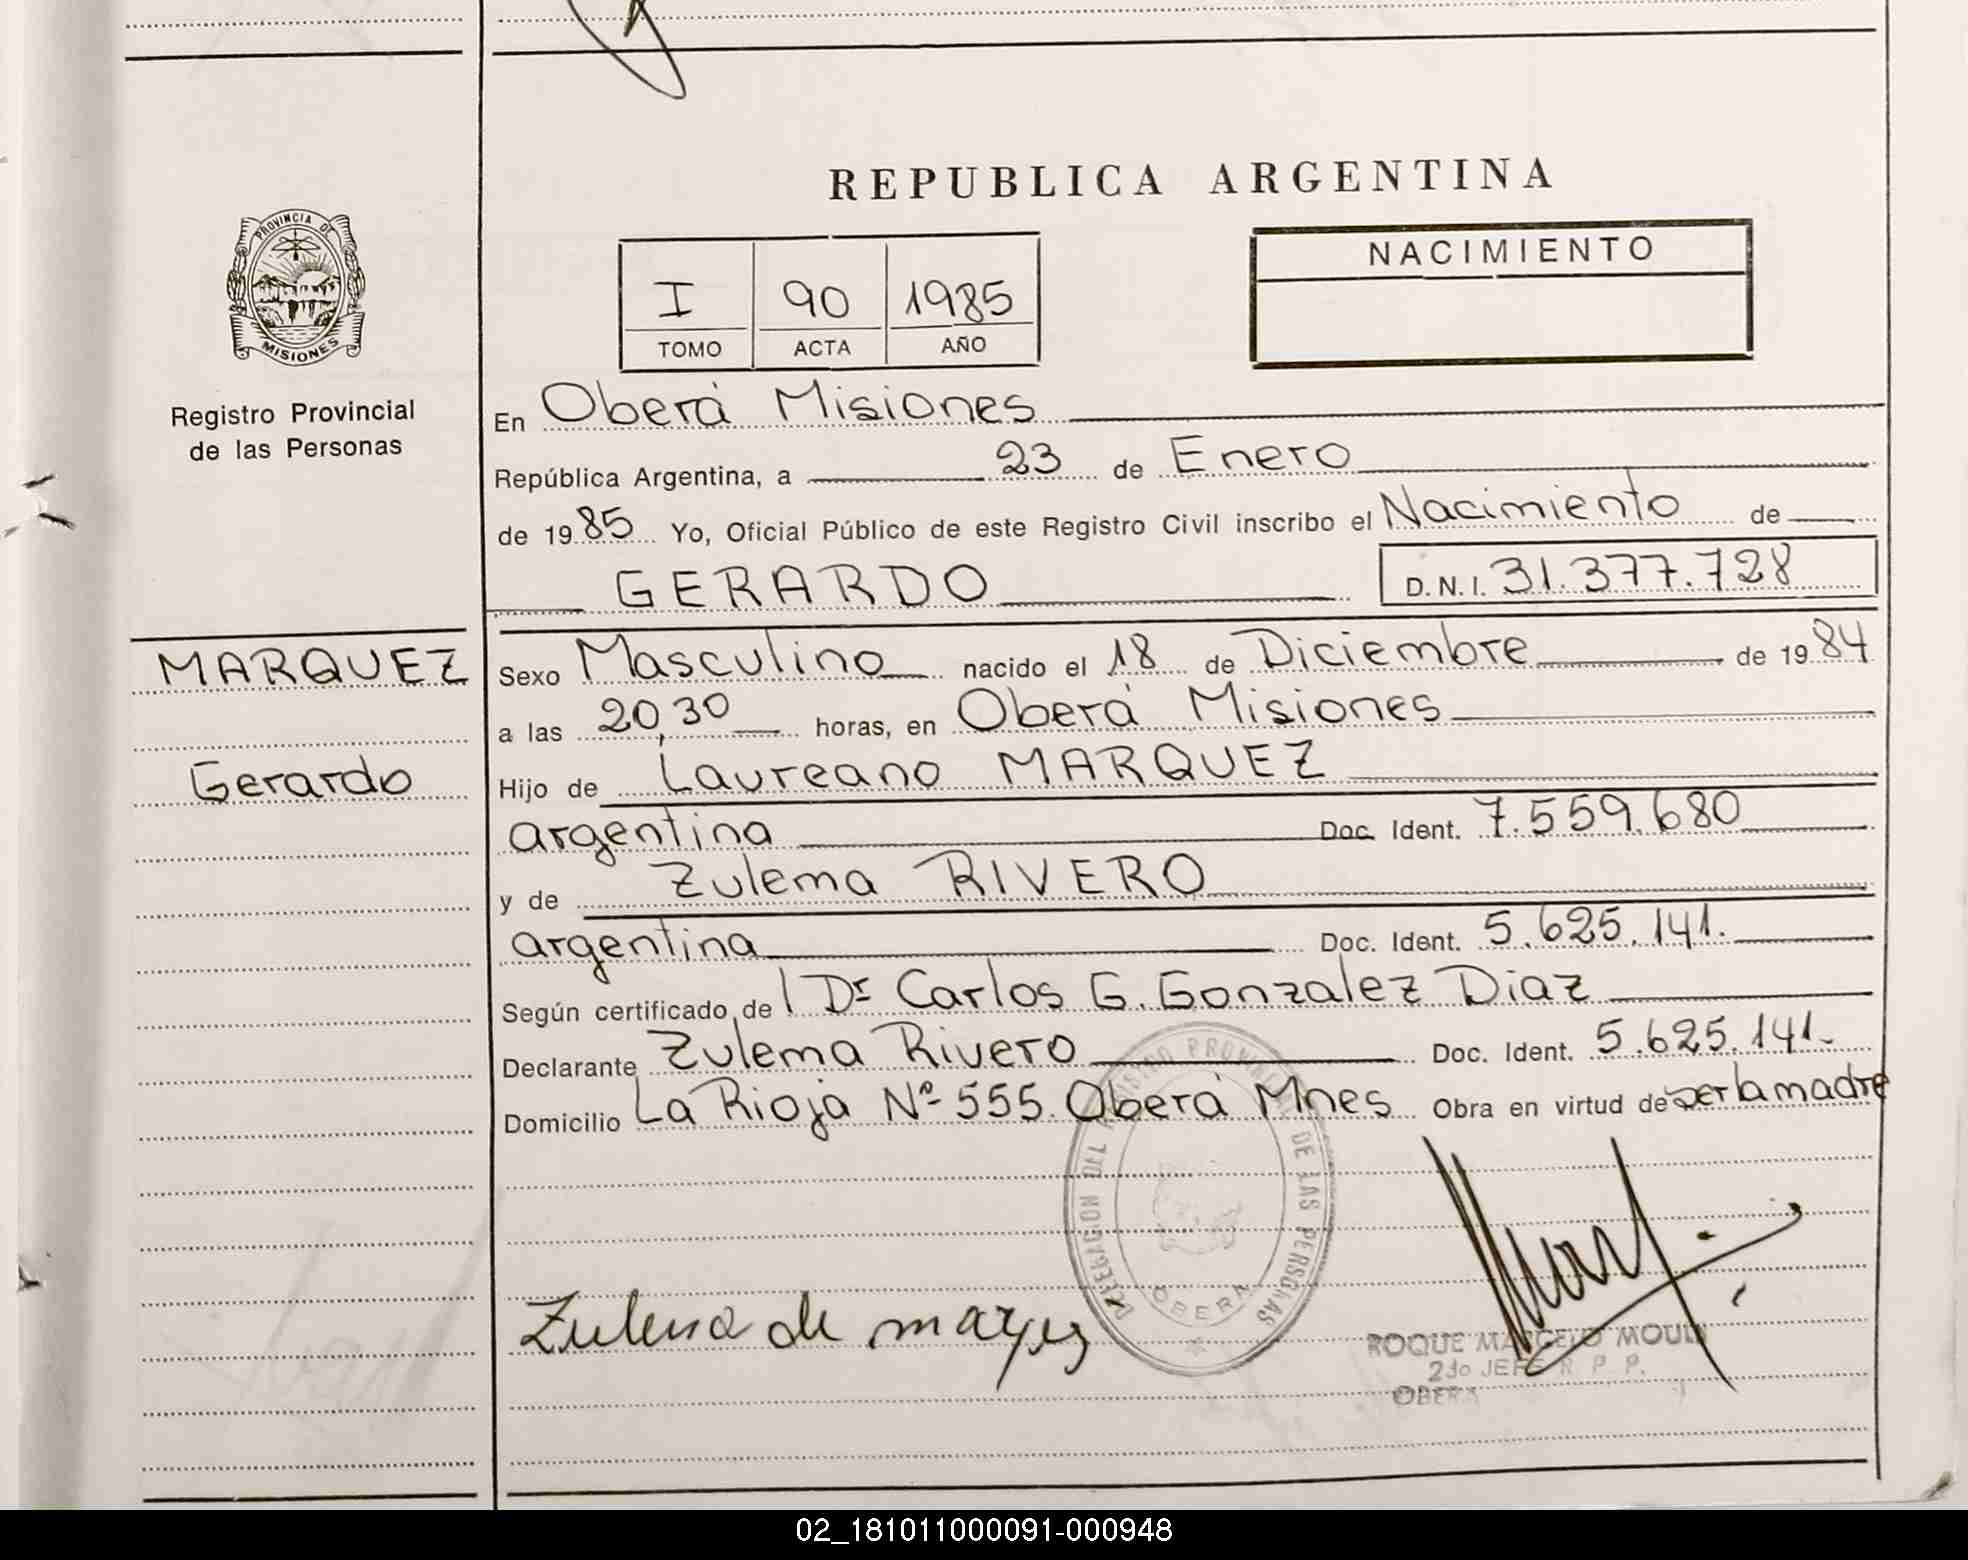 REPUBLICA ARGENTINA
PROVINCIA DE
MISIONES
Registro Provincial
de las Personas
I 90 1985
TOMO ACTA AÑO
NACIMIENTO
En Oberá Misiones
República Argentina, a 23 de Enero
de 1985 Yo, Oficial Público de este Registro Civil inscribo el Nacimiento de
GERARDO D.N.I. 31.377.728
MARQUEZ
Gerardo
Sexo Masculino nacido el 18 de Diciembre de 1984
a las 20,30 horas, en Oberá Misiones
Hijo de Laureano MARQUEZ
argentina Doc. Ident. 7.559.680
y de Zulema RIVERO
argentina Doc. Ident. 5.625.141.
Según certificado de l Dr Carlos G. Gonzalez Diaz
Declarante Zulema Rivero Doc. Ident. 5.625.141.-
Domicilio La Rioja Nº 555 Oberá Mnes Obra en virtud de ser la madre
DELEGACION DEL REGISTRO PROVINCIAL DE LAS PERSONAS
OBERA
Zulema de
ROQUE MARCELO
2do JEFE R. P. P.
OBERA
02_181011000091-000948